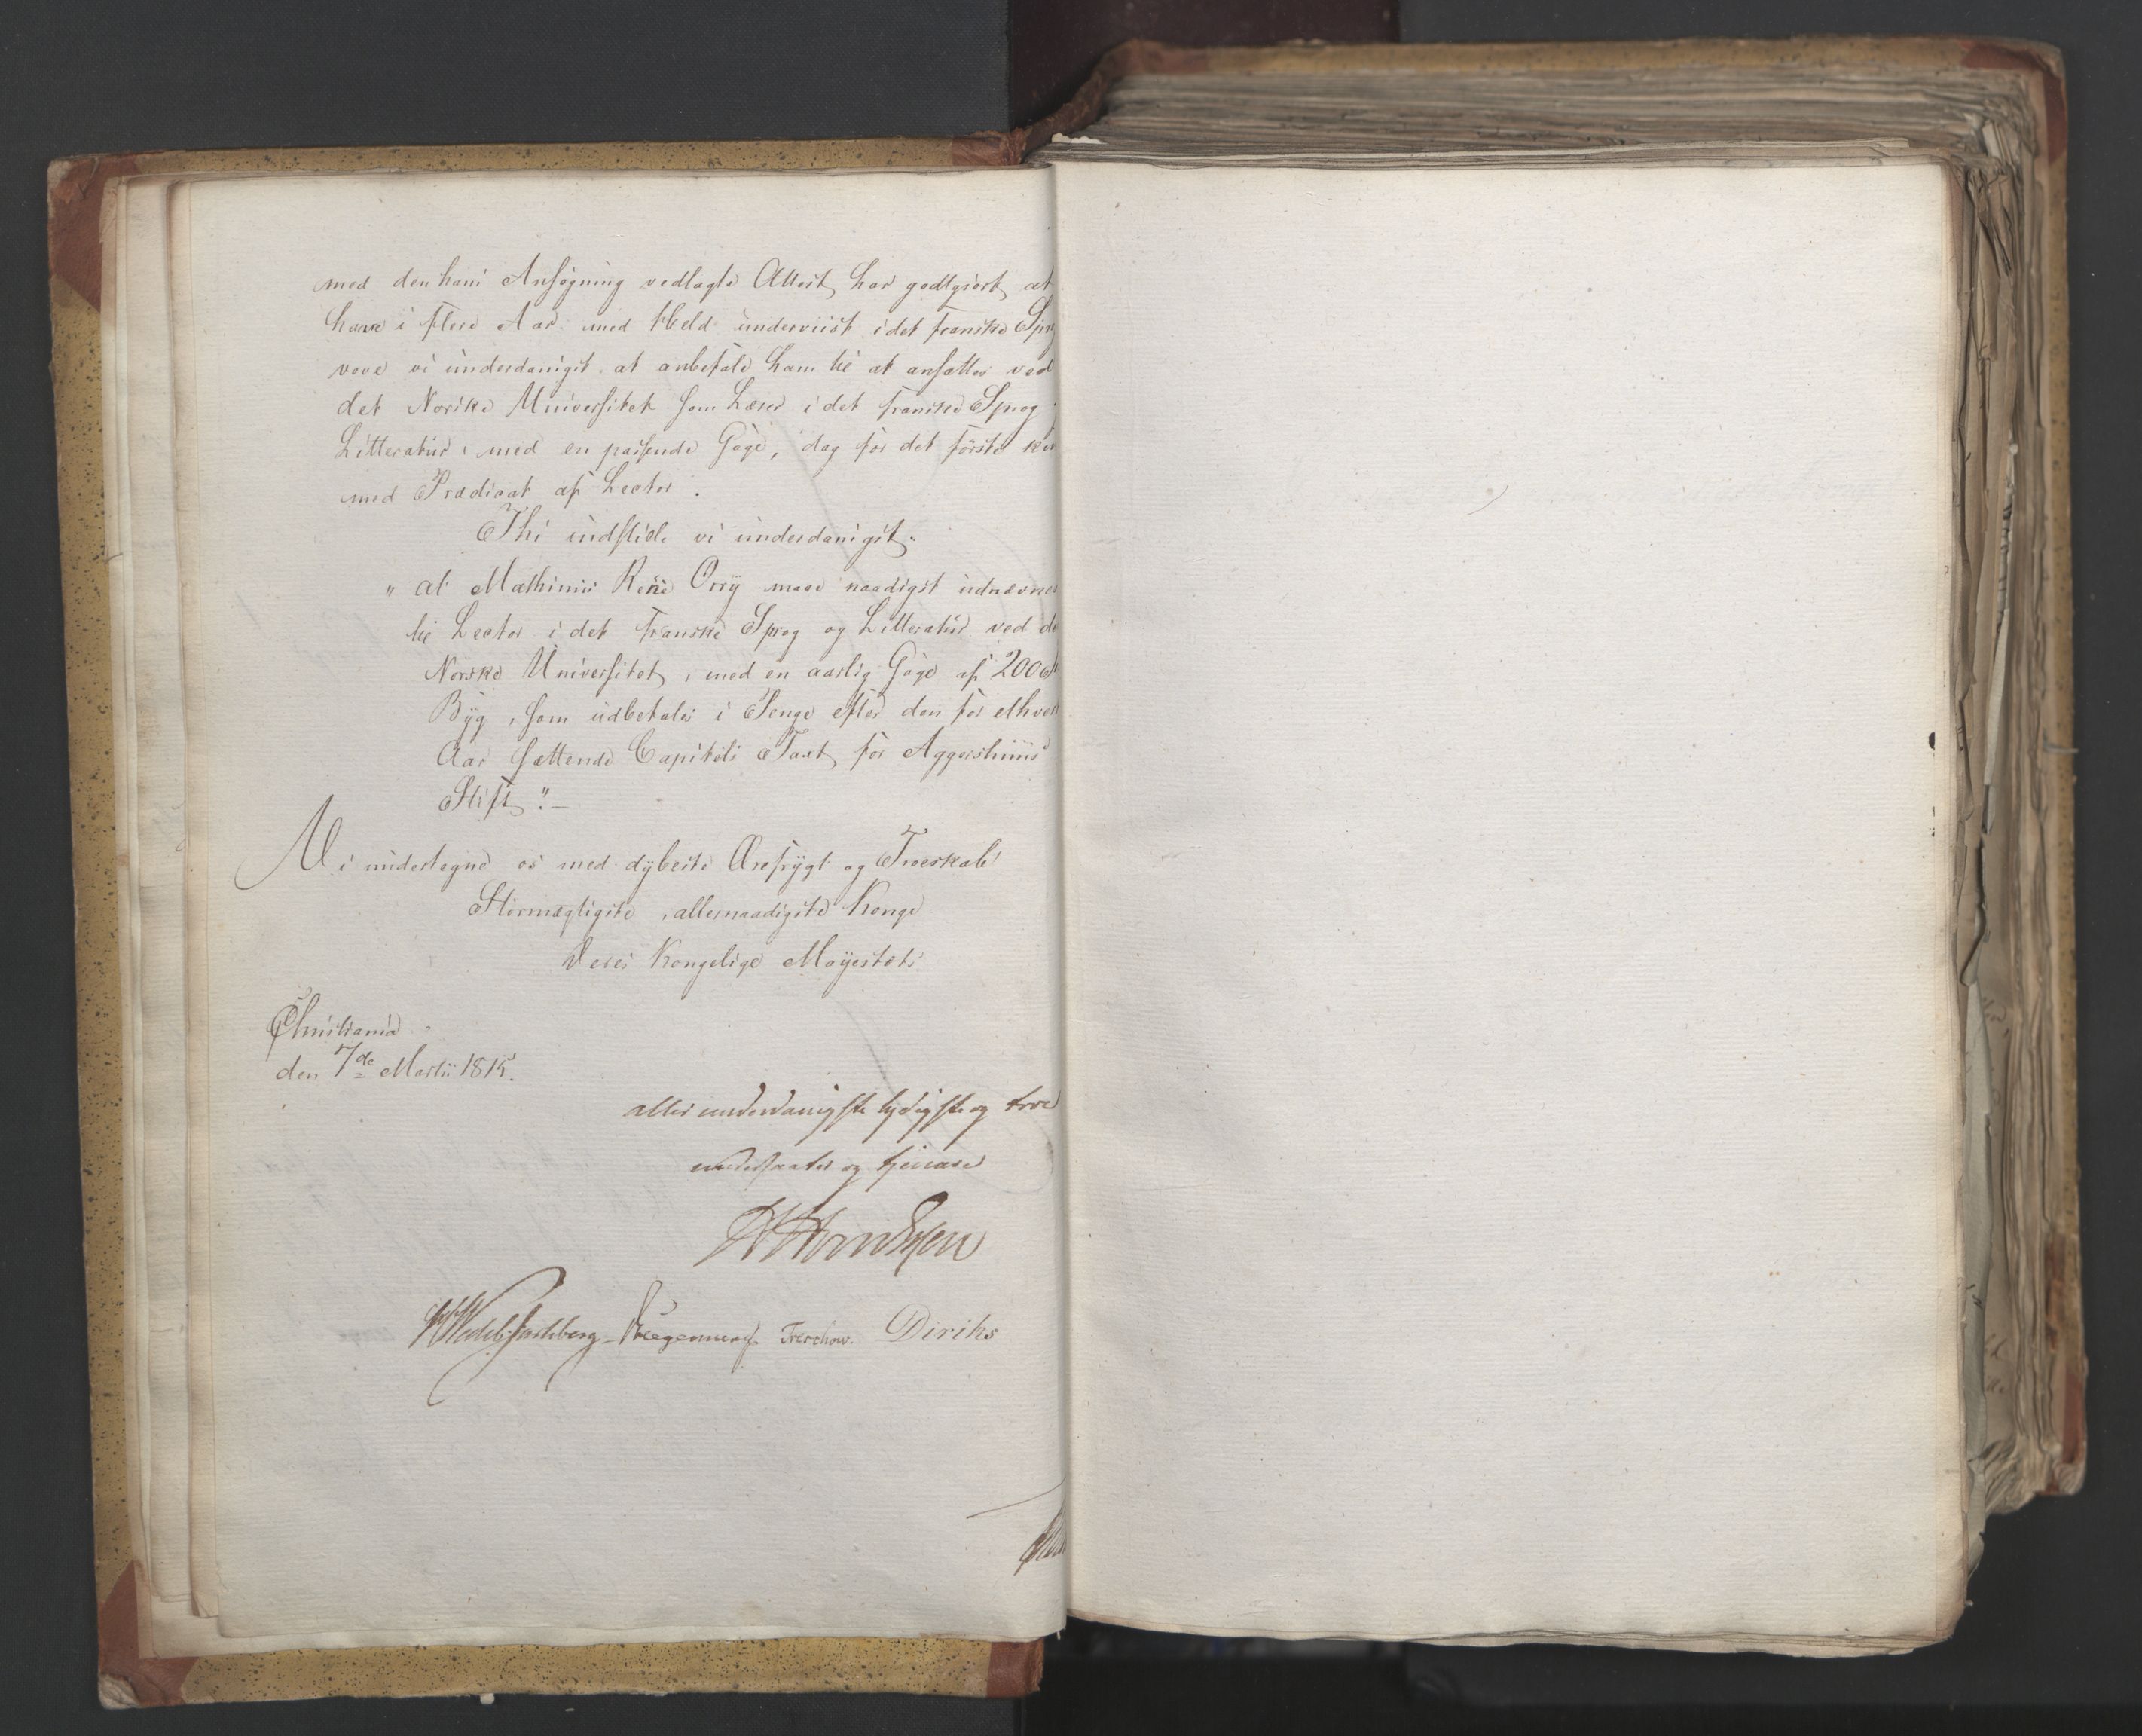 med den hans Ansøgning vedlagte Attest har godtgiort at
have i flere Aar med Held underviist i det franske Spro
vove vi underdanigst at anbefale ham til at ansættes ved
det Norske Universitet som Lærer i det franske Sprog
Litteratur, med en passende Gage, dog for det første kun
med Prædicat af Lector.
Thi indstille vi underdanigst.
" at Mathurin René Orry maae naadigst udnævnes
til Lector i det franske Sprog og Litteratur ved de
Norske Universitet, med en aarlig Gage af 200
Byg, som udbetales i Penge efter den for ethvert
Aar sættende Capitels Taxt for Aggershuus
Stift".-
Vi undertegne os med dybeste Ærefrygt og Troeskab
Stormægtigste, allernaadigste Konge
Deres Kongelige Mayestæts
Christiania
den 7de Martii 1815.
aller underdanigste lydigste og troe
undersaatter og tjenere
Wedel Jarlsberg Treschow. Diriks